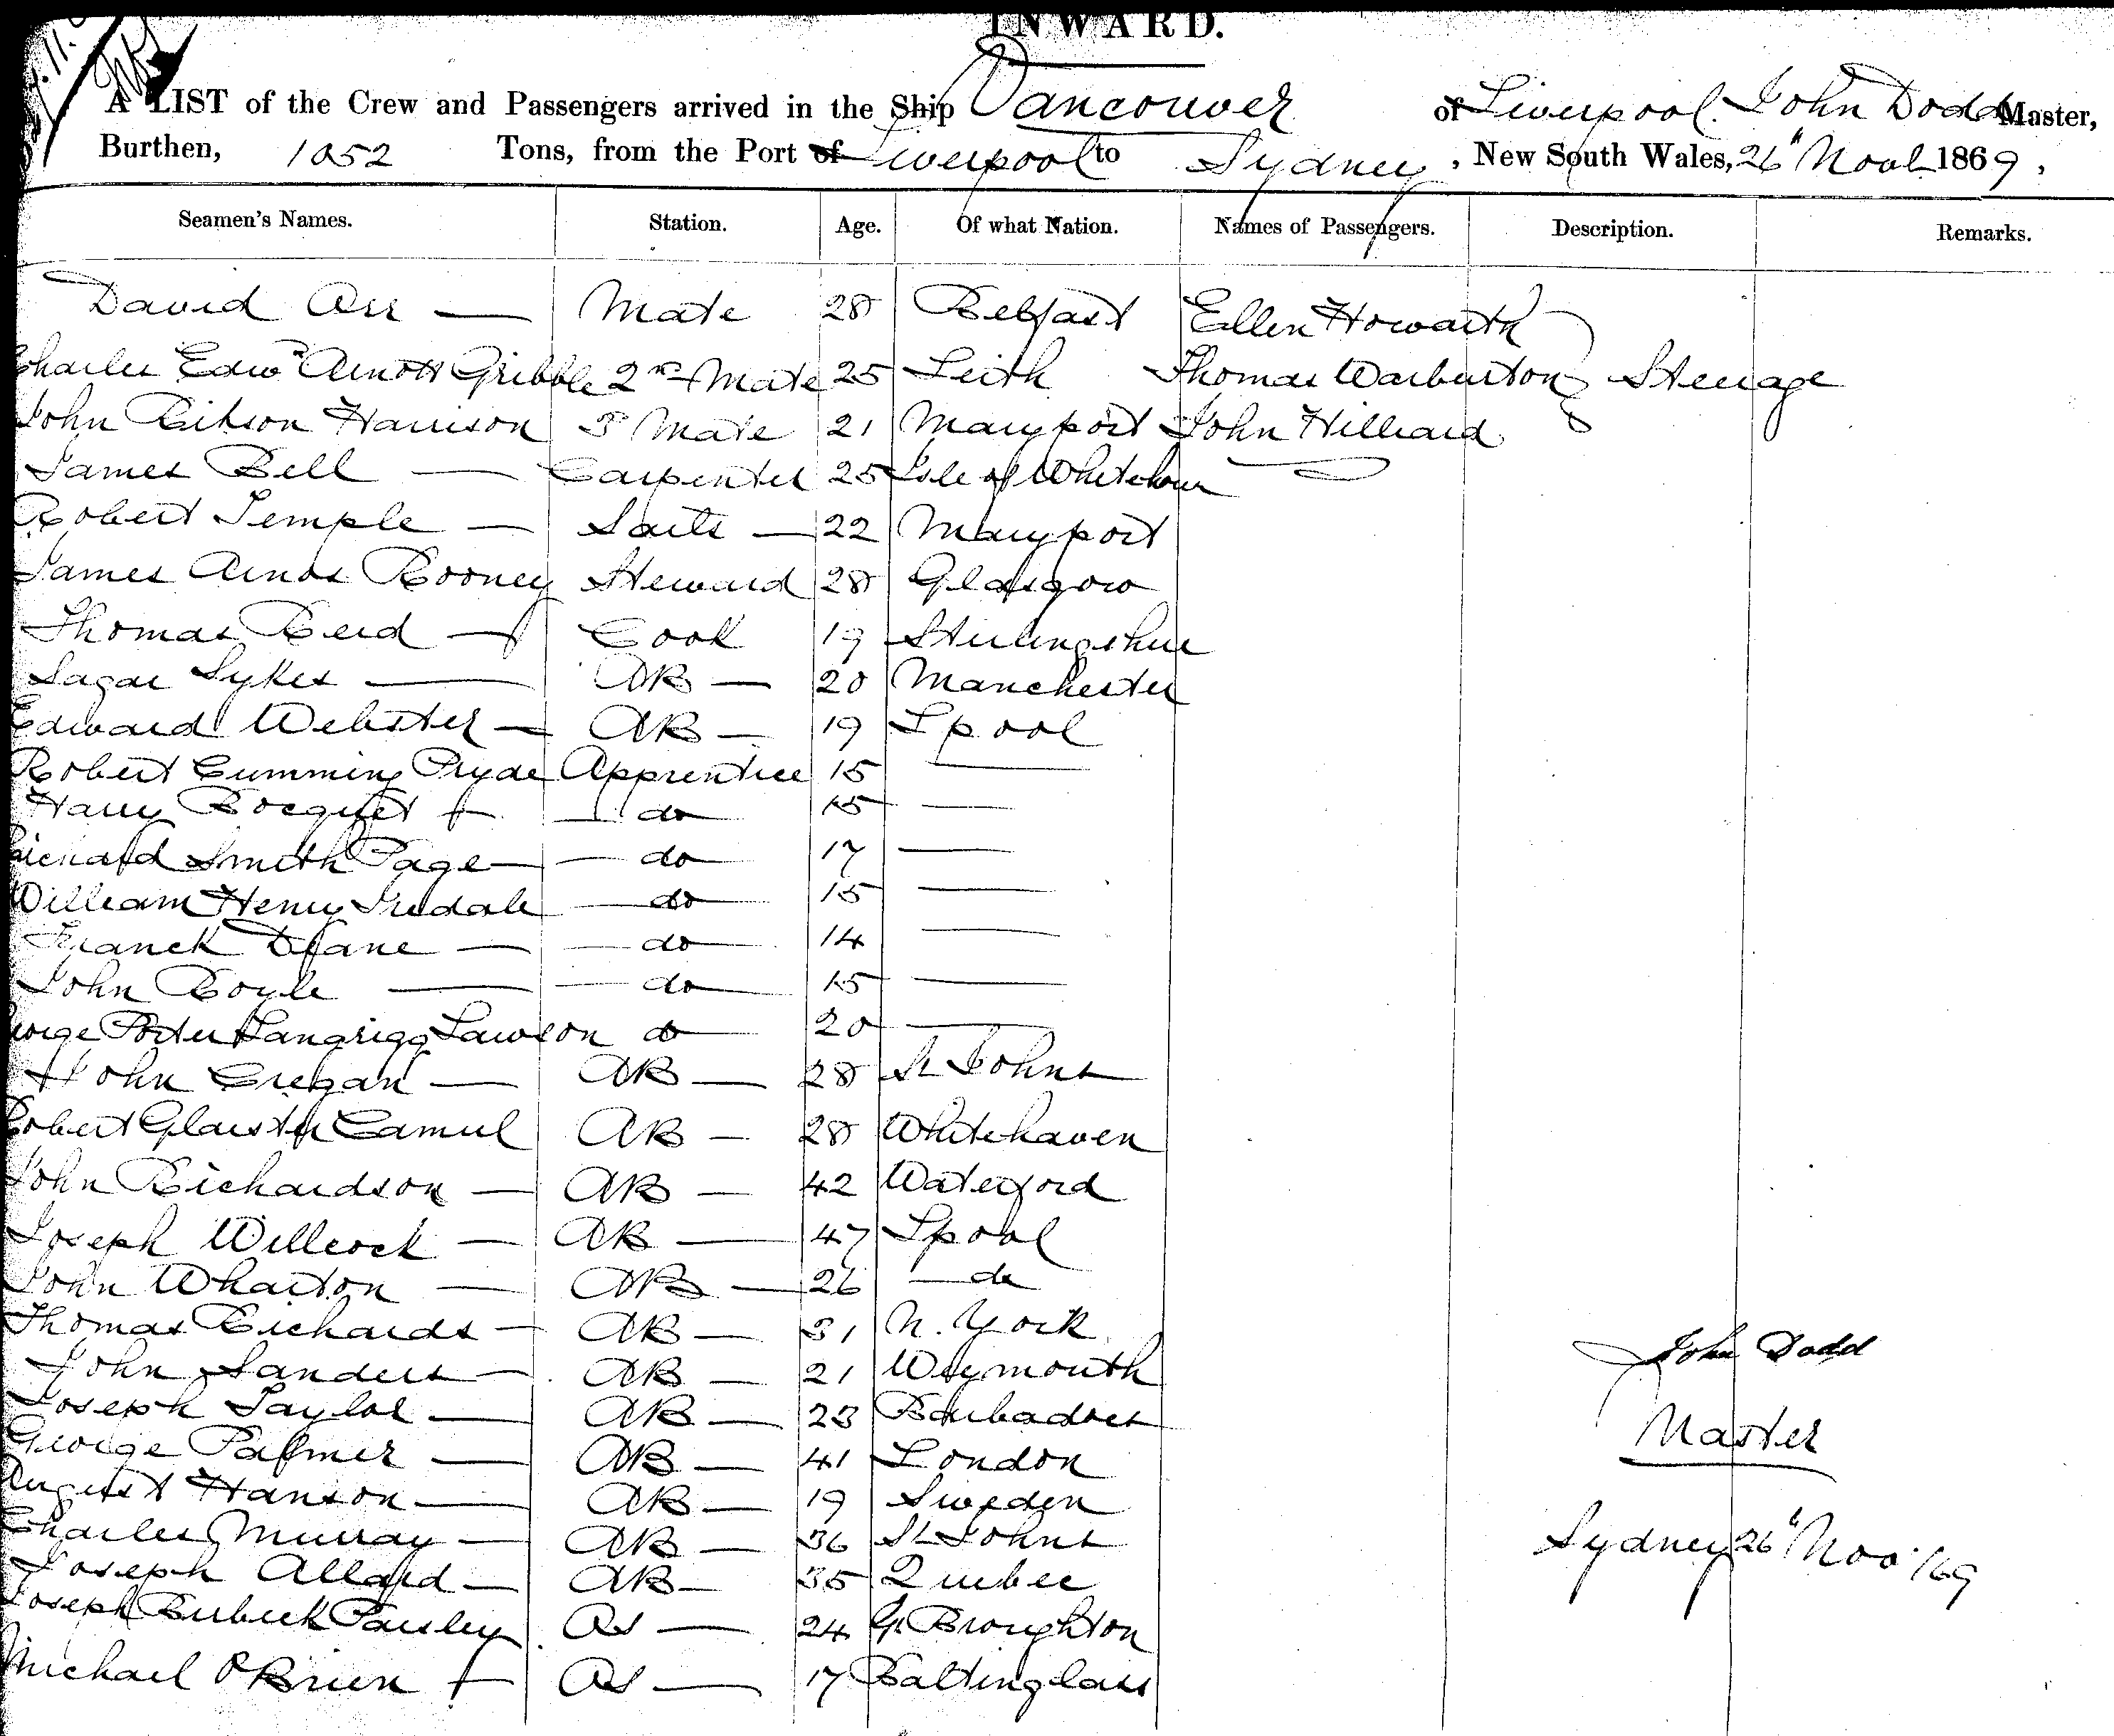 INWARD.
A LIST of the Crew and Passengers arrived in the Ship Vancouver of Liverpool. John Dodd Master,
Burthen, 1052 Tons, from the Port of Liverpool to Sydney, New South Wales, 26" Novl 1869.
Seamen's Names. Station. Age. Of what Nation. Names of Passengers. Description. Remarks.
David Orr — Mate 28 Belfast Ellen Howarth
Charles Edwd Arnott Gribble 2nd Mate 25 Leith Thomas Warburton Steerage
John Ritson Harrison 3d Mate 21 Maryport John Hilliard
James Bell — Carpenter 25 Isle of
Robert Temple — Sails — 22 Maryport
James Amos Rooney Steward 28 Glasgow
Thomas Reid — Cook 19 Stirlingshire
Sagar Sykes — AB — 20 Manchester
Edward Webster — AB — 19 Lpool
Robert Cumming Pryde Apprentice 15 —
Harry Bocquet — do 15 —
Richard Smith Page — do 17 —
William Henry Iredale — do 15 —
Franck Deane — do 14 —
John Boyle — do 15 —
George Porter Langrigg Lawson do 20 —
John Cregan — AB — 28 St Johns
Robert Glaister AB — 28 Whitehaven
John Richardson — AB — 42 Waterford
Joseph Willcock — AB — 47 Lpool
John Wharton — AB — 26 — do
Thomas Richards — AB — 31 N. York
John Sanders — AB — 21 Weymouth
Joseph Taylor — AB — 23 Barbadoes
George Palmer — AB — 41 London
August Hanson — AB — 19 Sweden
Charles Murray — AB — 36 St Johns
Joseph Allard — AB — 35 Quebec
Joseph Birbeck Paisley OS — 24 Gt Broughton
Michael O'Brien — OS — 17 Baltinglass
John Dodd
Master
Sydney 26" Nov /69